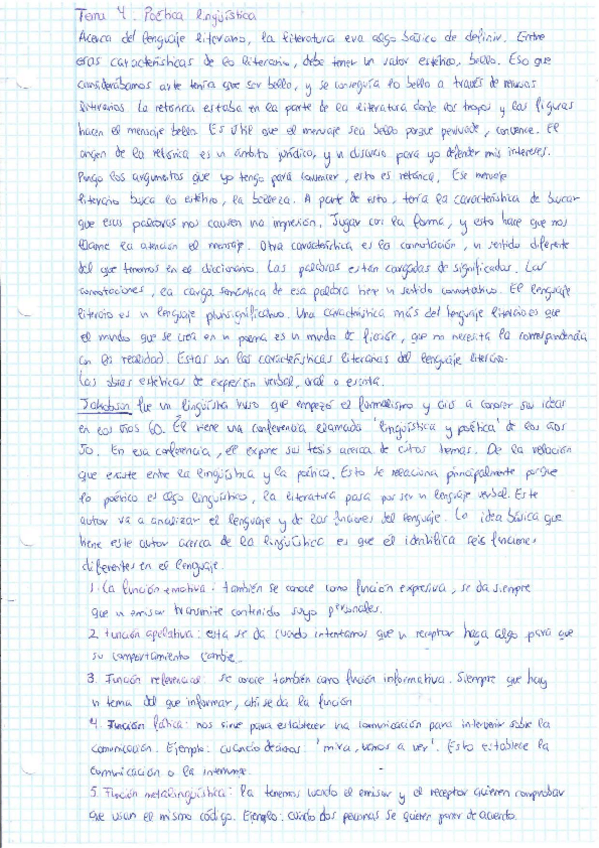 Tema 4. Poética lingüística
Acerca del lenguaje literario, la literatura era algo básico de definir. Entre
esas características de lo literario, debe tener un valor estético, bello. Eso que
considerábamos arte tenía que ser bello, y se conseguía lo bello a través de recursos
literarios. La retórica estaba en la parte de la literatura donde los tropos y las figuras
hacen el mensaje bello. Es útil que el mensaje sea bello porque persuade, convence. El
origen de la retórica es un ámbito jurídico, y un discurso para yo defender mis intereses.
Pongo los argumentos que yo tengo para convencer, esto es retórica. Ese mensaje
literario busca lo estético, la belleza. A parte de esto, tenía la característica de buscar
que esas palabras nos causen una impresión. Jugar con la forma, y esto hace que nos
llame la atención el mensaje. Otra característica es la connotación, un sentido diferente
del que tenemos en el diccionario. Las palabras están cargadas de significados. Las
connotaciones, la carga semántica de esa palabra tiene un sentido connotativo. El lenguaje
literario es un lenguaje plurisignificativo. Una característica más del lenguaje literario es que
el mundo que se crea en un poema es un mundo de ficción, que no necesita la correspondencia
con la realidad. Estas son las características literarias del lenguaje literario.
Las obras estéticas de expresión verbal, oral o escrita.
Jakobson fue un lingüista ruso que empezó el formalismo y dio a conocer sus ideas
en los años 60. Él tiene una conferencia llamada 'lingüística y poética' de los años
50. En esa conferencia, él expone su tesis acerca de estos temas. De la relación
que existe entre la lingüística y la poética. Esto se relaciona principalmente porque
lo poético es algo lingüístico, la literatura pasa por ser un lenguaje verbal. Este
autor va a analizar el lenguaje y de las funciones del lenguaje. La idea básica que
tiene este autor acerca de la lingüística es que él identifica seis funciones
diferentes en el lenguaje.
1. La función emotiva: también se conoce como función expresiva, se da siempre
que un emisor transmite contenido suyo personales.
2. Función apelativa: esta se da cuando intentamos que un receptor haga algo para que
su comportamiento cambie.
3. Función referencial: se conoce también como función informativa. Siempre que hay
un tema del que informar, ahí se da la función
4. Función fática: nos sirve para establecer una comunicación para intervenir sobre la
comunicación. Ejemplo: cuando decimos: 'mira, vamos a ver'. Esto establece la
comunicación o la interrumpe.
5. Función metalingüística: la tenemos cuando el emisor y el receptor quieren comprobar
que usan el mismo código. Ejemplo: cuando dos personas se quieren poner de acuerdo.